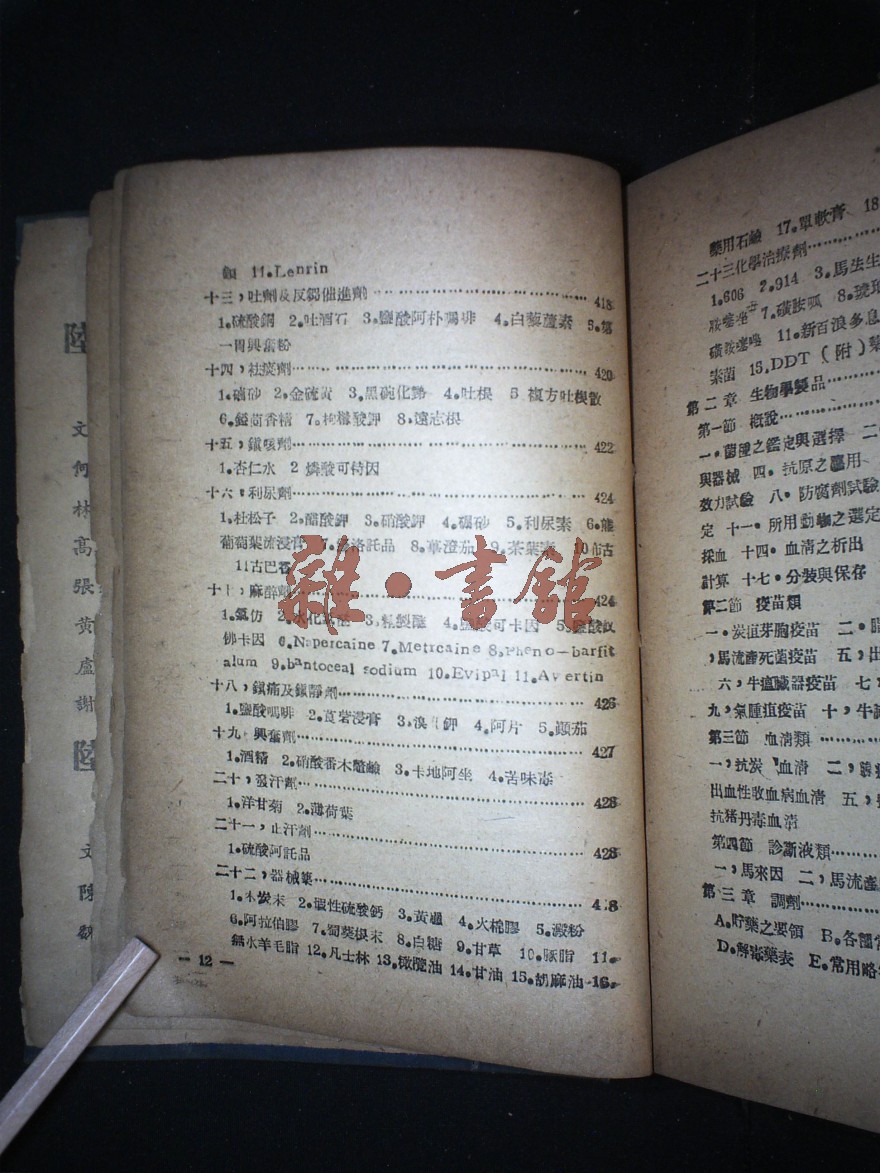 陸
文
何
林
高
張
黄
盧
謝
陸
文
陳
11.Lenrin
十三，吐劑及反芻催進劑 418
1.硫酸銅 2.吐酒石 3.鹽酸阿朴嗎啡 4.白藜蘆素 5.
一胃興奮粉
十四，祛痰劑 420
1.硇砂 2.金硫黄 3.黑硫化銻 4.吐根 5 複方吐根散
6.茴香精 7.枸櫞酸鉀 8.遠志根
十五，鎮咳劑 422
1.杏仁水 2 燐酸可特因
十六，利尿劑 424
1.杜松子 2.醋酸鉀 3.硝酸鉀 4.硼砂 5.利尿素 6.熊
葡萄葉流浸膏 7.洛託品 8.蓽澄茄 9.茶葉素 10
11古巴香
十七，麻醉劑 424
1.氯仿 2.水化 3.精製醚 4.鹽酸可卡因 5.鹽酸奴
佛卡因 6.Napercaine 7.Metrcaine 8.Pheno-barfit
alum 9.bantoceal sodium 10.Evipal 11.Avertin
十八，鎮痛及鎮靜劑 426
1.鹽酸嗎啡 2.莨菪浸膏 3.溴鉀 4.阿片 5.顛茄
十九，興奮劑 427
1.酒精 2.硝酸番木鼈鹼 3.卡地阿坐 4.苦味毒
二十，發汗劑 428
1.洋甘菊 2.薄荷葉
二十一，止汗劑 428
1.硫酸阿託品
二十二，器械藥 4 8
1.木炭末 2.性硫酸鈣 3.黃蠟 4.火棉膠 5.澱粉
6.阿拉伯膠 7.蜀葵根末 8.白糖 9.甘草 10.豚脂 11.
無水羊毛脂 12.凡士林 13.橄欖油 14.甘油 15.胡麻油 16.
— 12 —
藥用石鹼 17.單軟膏 18
二十三化學治療劑
1.606 2.914 3.馬生生
胺噻唑 7.磺胺呱 8.琥珀
磺胺噻唑 11.新百浪多息
素菌 15.DDT（附）
第二章 生物學製品
第一節 概說
一．菌種之鑑定與選擇 二
與器械 四．抗原之應用
效力試驗 八．防腐劑試驗
定 十一．所用動物之選定
採血 十四．血清之析出
計算 十七．分裝與保存
第二節 疫苗類
一．炭疽芽胞疫苗 二．
，馬流產死菌疫苗 五，出
六，牛瘟臟器疫苗 七
九，氣腫疽疫苗 十，牛
第三節 血清類
一，抗炭血清 二，
出血性敗血病血清 五，
抗猪丹毒血清
第四節 診斷液類
一，馬來因 二，馬流產
第三章 調劑
A.貯藥之要領 B.各種
D.解毒藥表 E.常用略
雜·書館